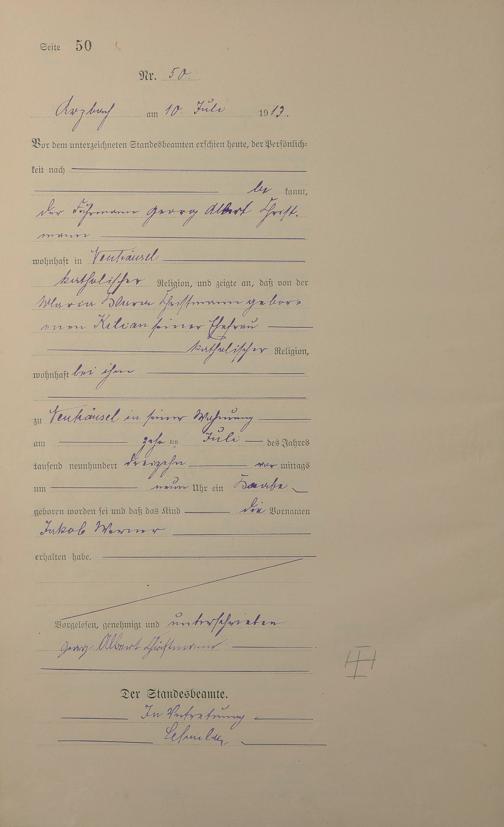 Seite 50
Nr. 50.
Arzbach am 10 Juli 1913.
Vor dem unterzeichneten Standesbeamten erschien heute, der Persönlich-
keit nach
be kannt,
der Fuhrmann Georg Albert Christ-
mann
wohnhaft in Neuhäusel
katholischer Religion, und zeigte an, daß von der
Maria Christmann gebor-
enen Kilian seiner Ehefrau
katholischer Religion,
wohnhaft bei ihm
zu Neuhäusel in seiner Wohnung
am Juli des Jahres
tausend neunhundert dreizehn vor mittags
um neun Uhr ein Knabe
geboren worden sei und daß das Kind die Vornamen
Jakob Werner
erhalten habe.
Vorgelesen, genehmigt und unterschrieben
Georg Albert Christmann
Der Standesbeamte.
In Vertretung